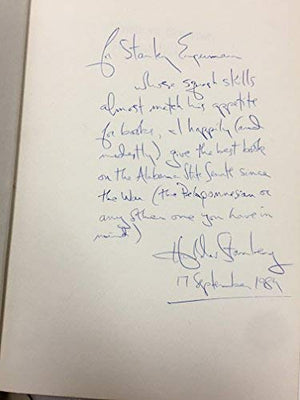 for Stanley Engerman
whose squash skills
almost match his appetite
for books, I happily (and
modestly) give the best book
on the Alabama State Senate since
the War (the Peloponnesian or
any other one you have in
mind)
17 September 1989